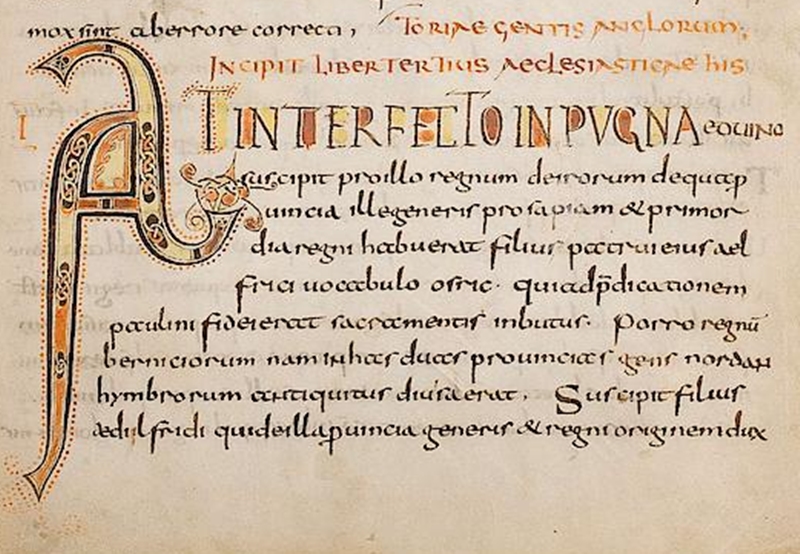 mox sint aberrore correcti, TORIAE GENTIS ANGLORUM;
INCIPIT LIBER TERTIUS AECLESIASTICAE HIS
I
AT INTERFECTO IN PVGNA eduino
suscipit pro illo regnum deirorum de qua p
uincia ille generis prosapiam & primor
dia regni habuerat filius patrui eius ael
frici uocabulo osric. qui ad p̄dicationem
paulini fidei erat sacramentis inbutus. Porro regnū
berniciorum nam in has duas prouincias gens nordan
hymbrorum antiquitus diuisa erat, Suscipit filius
aedilfridi qui de illa puincia generis & regni originem dux